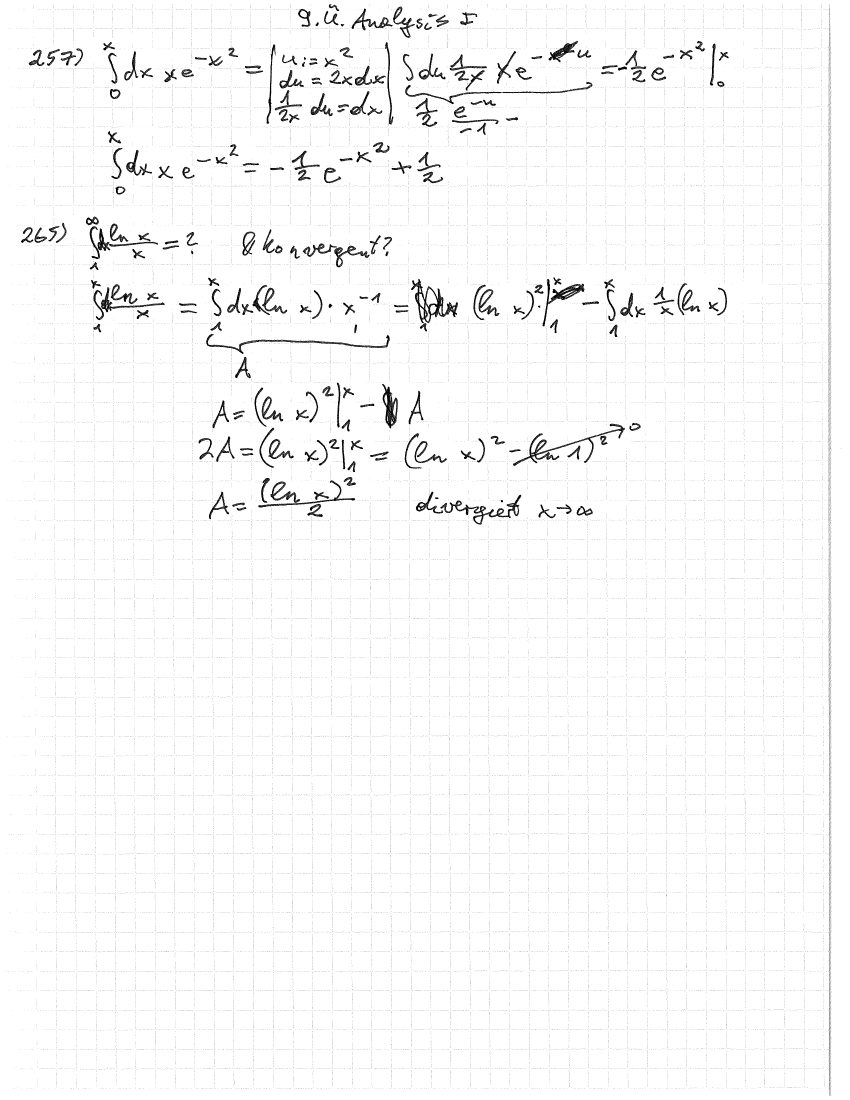 9.Ü. Analysis I
257) ∫₀ˣ dx x e^(-x²) = | u := x² du = 2x dx 1/(2x) du = dx | ∫ du 1/(2x) x e^(-u) = -1/2 e^(-x²) |₀ˣ
1/2 e^(-u)/(-1) -
∫₀ˣ dx x e^(-x²) = -1/2 e^(-x²) + 1/2
265) ∫₁^∞ dx (ln x)/x = ? & konvergent?
∫₁ˣ dx (ln x)/x = ∫₁ˣ dx (ln x) · x^(-1) = (ln x)² |₁ˣ - ∫₁ˣ dx 1/x (ln x)
A
A = (ln x)² |₁ˣ - A
2A = (ln x)² |₁ˣ = (ln x)² - (ln 1)² → 0
A = (ln x)²/2 divergiert x → ∞